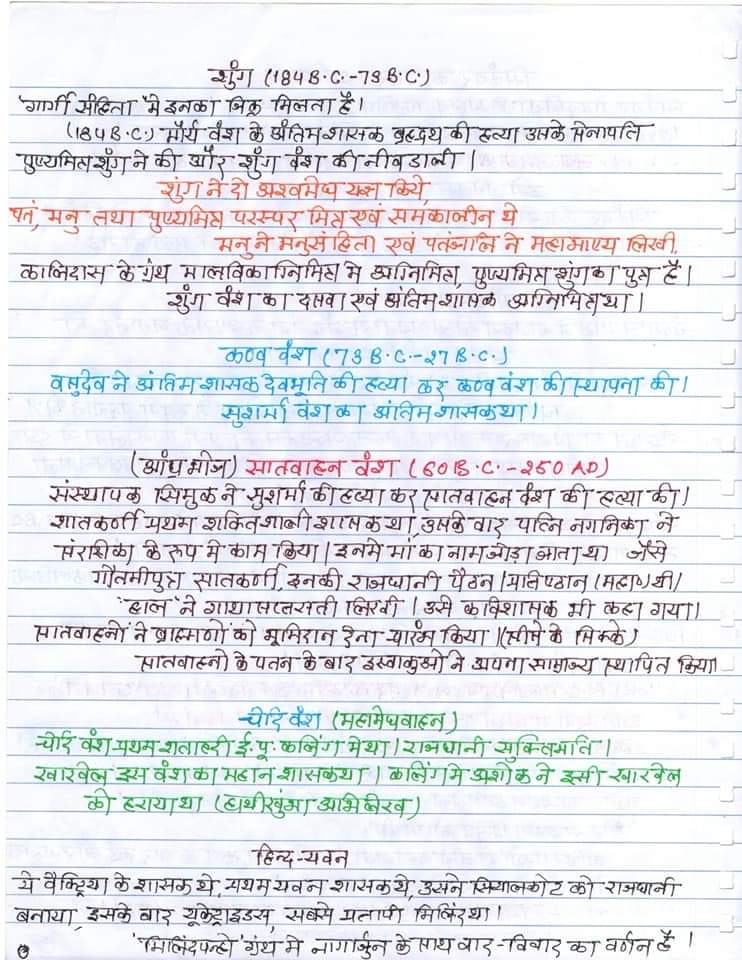 शुंग (184 B.C.-73 B.C.)
'गार्गी संहिता' मे इनका जिक्र मिलता है।
(184 B.C.) मौर्य वंश के अंतिम शासक ब्रहद्रथ की हत्या उसके सेनापति
पुष्यमित्र शुंग ने की और शुंग वंश की नीव डाली।
शुंग ने दो अश्वमेध यज्ञ किये,
पतं, मनु तथा पुष्यमित्र परस्पर मित्र एवं समकालीन थे
मनु ने मनुसंहिता एवं पतंजलि ने महाभाष्य लिखी.
कालिदास के ग्रंथ मालविकाग्निमित्र मे अग्निमित्र, पुष्यमित्र शुंग का पुत्र है।
शुंग वंश का दसवा एवं अंतिम शासक अग्निमित्र था।
कण्व वंश (73 B.C.-27 B.C.)
वसुदेव ने अंतिम शासक देवभूति की हत्या कर कण्व वंश की स्थापना की।
सुशर्मा वंश का अंतिम शासक था।
(आंध्र भोज) सातवाहन वंश (60 B.C.-250 AD)
संस्थापक सिमुक ने सुशर्मा की हत्या कर सातवाहन वंश की हत्या की।
शातकर्णी प्रथम शक्तिशाली शासक था, उसके बाद पत्नि नगनिका ने
संरक्षिका के रूप मे काम किया। इनमे मां का नाम जोड़ा जाता था जैसे
गौतमीपुत्र सातकर्णी, इनकी राजधानी पैठन। प्रतिष्ठान (महा०) थी।
'हाल' ने गाथासप्तसती लिखी। उसे कविशासक भी कहा गया।
सातवाहनों ने ब्राह्मणों को भूमिदान देना प्रारंभ किया। (सीसे के सिक्के)
सातवाहनो के पतन के बाद इक्ष्वाकुओ ने अपना साम्राज्य स्थापित किया
चेदि वंश (महामेघवाहन)
चेदि वंश प्रथम शताब्दी ई.पू. कलिंग मे था। राजधानी सुक्तिमति।
खारवेल इस वंश का महान शासक था। कलिंग मे अशोक ने इसी खारवेल
को हराया था (हाथीगुफा अभिलेख)
हिन्द-यवन
ये वैक्ट्रिया के शासक थे, प्रथम यवन शासक थे, उसने सियालकोट को राजधानी
बनाया, इसके बाद यूक्रेटाइडस, सबसे प्रतापी मिलिंद था।
'मिलिंदपन्हो' ग्रंथ मे नागार्जुन के साथ वाद-विवाद का वर्णन है।